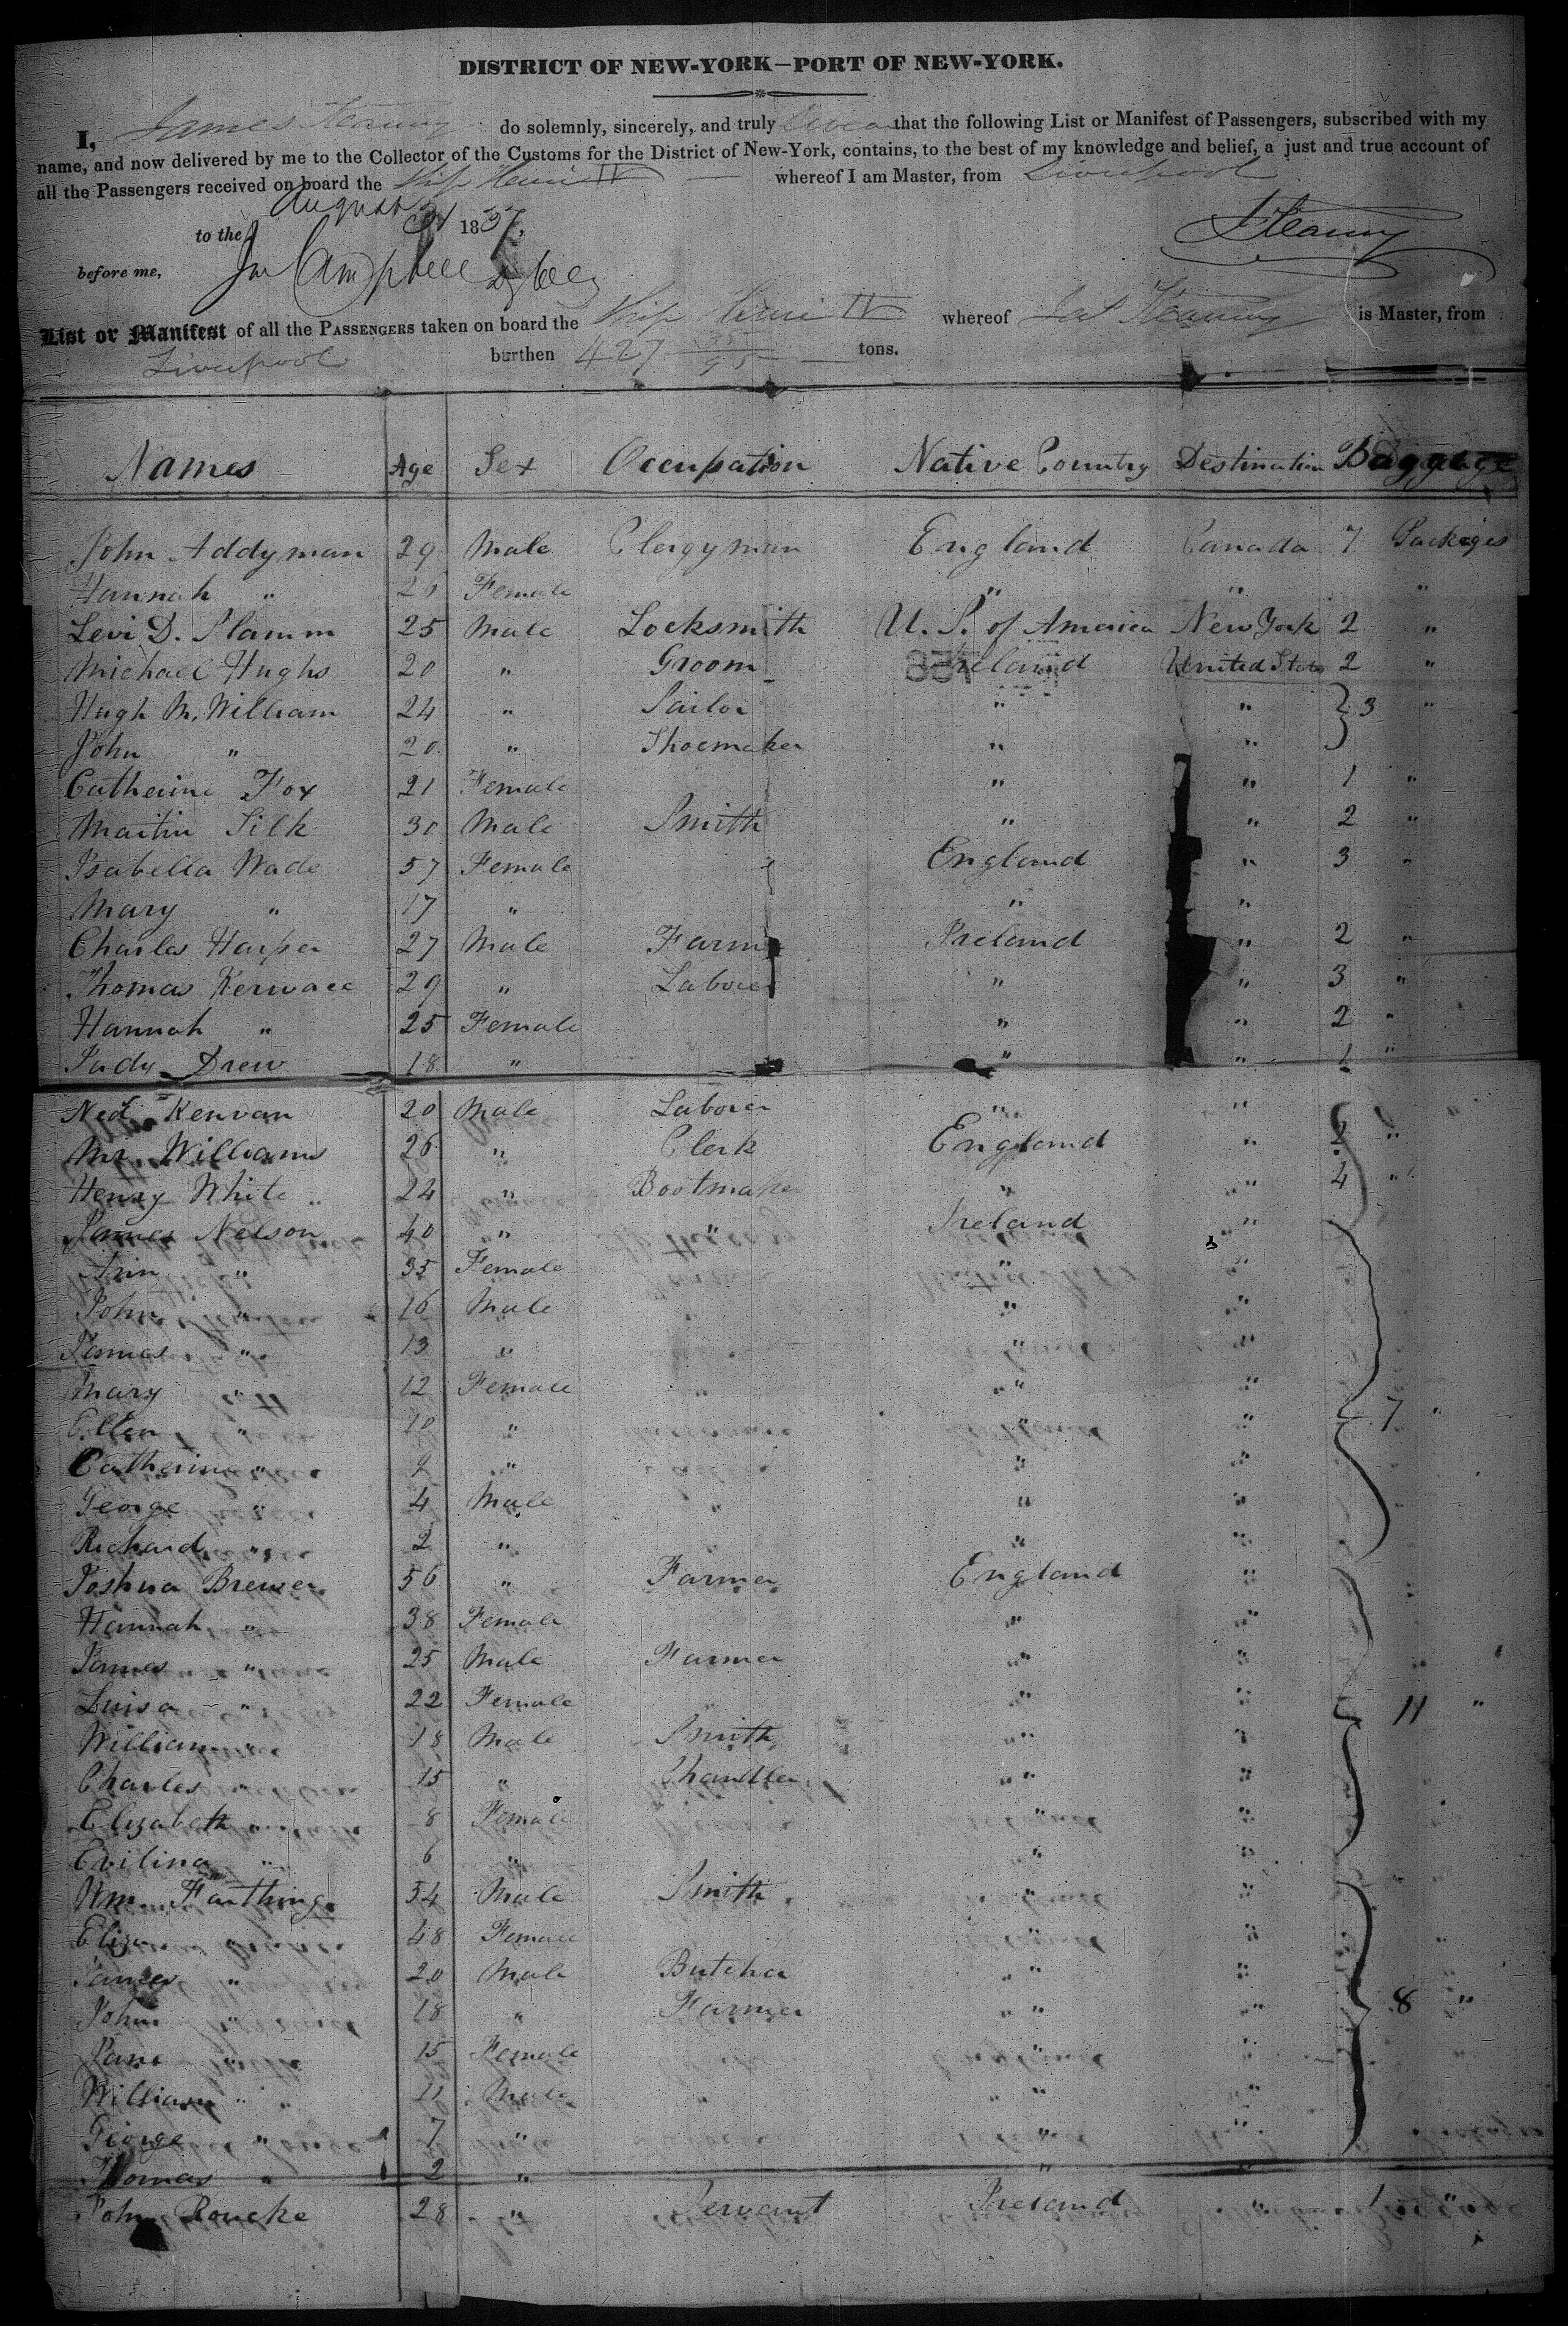 DISTRICT OF NEW-YORK—PORT OF NEW-YORK.
I, James Kearney do solemnly, sincerely, and truly Swear that the following List or Manifest of Passengers, subscribed with my
name, and now delivered by me to the Collector of the Customs for the District of New-York, contains, to the best of my knowledge and belief, a just and true account of
all the Passengers received on board the Ship Henri IV whereof I am Master, from Liverpool
to the August 31 1837,
J Kearney
before me, Campbell
List or Manifest of all the PASSENGERS taken on board the Ship Henri IV whereof Jas Kearney is Master, from
Liverpool burthen 427 35/95 tons.
Names Age Sex Occupation Native Country Destination Baggage
John Addyman 29 Male Clergyman England Canada 7 Packages
Hannah " 26 Female " " "
Levi D. Slamm 25 Male Locksmith U. S. of America New York 2 "
Michael Hughs 20 " Groom Ireland United States 2 "
Hugh Mc William 24 " Sailor " " } 3 "
John " 20 " Shoemaker " "
Catherine Fox 21 Female " " 1 "
Martin Silk 30 Male Smith " " 2 "
Isabella Wade 57 Female England " 3 "
Mary " 17 " " "
Charles Harper 27 Male Farm Ireland " 2 "
Thomas Kerwace 29 " Laborer " " 3 "
Hannah " 25 Female " " 2 "
Judy Drew 18 " " " 1 "
Ned Kenvan 20 Male Laborer " "
Mr. Williams 26 " Clerk England " 2 "
Henry White 24 " Bootmaker " " 4 "
James Nelson 40 " " Ireland "
Ann " 35 Female " "
John " 16 Male " "
James " 13 " " "
Mary " 12 Female " "
Ellen " 10 " " " 7 "
Catherine " " " "
George " 4 Male " "
Richard " 2 " " "
Joshua Brewer 56 " Farmer England "
Hannah " 38 Female " "
James " 25 Male Farmer " "
Luisa " 22 Female " " 11 "
William " 18 Male Smith " "
Charles " 15 " Chandler " "
Elizabeth " 8 Female " "
Evilina " 6 " " "
Wm. Farthing 54 Male Smith " "
Eliza 48 Female " "
James " 20 Male Butcher " "
John " 18 " Farmer " " 8 "
Jane " 15 Female " "
William " 11 Male " "
George " 7 " " "
Thomas " 2 " " "
John Roucke 28 " Servant Ireland " 1 "